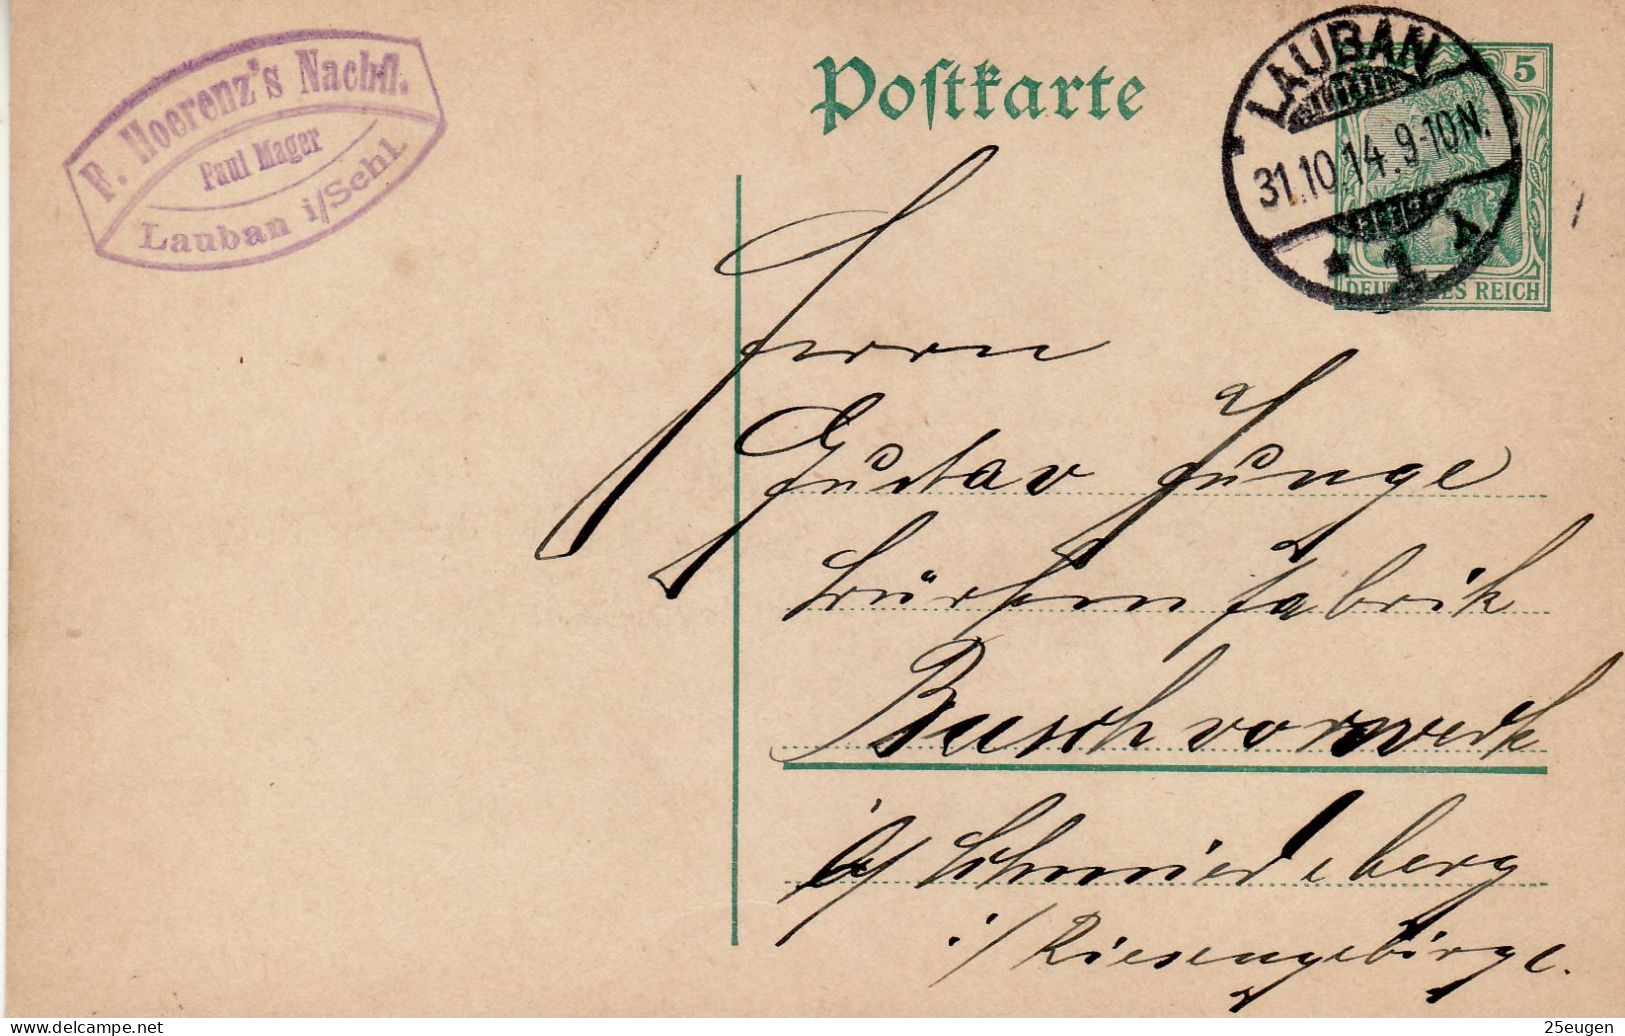 F. Hoerenz's Nachfl.
Paul Mager
Lauban i/Schl.
Postkarte
LAUBAN
31.10.14.9-10N.
* 1
5
DEUTSCHES REICH
Herrn
Gustav Junge
Bürstenfabrik
Buschvorwerk
b/ Schmiedeberg
i/Riesengebirge.
delcampe.net
25eugen